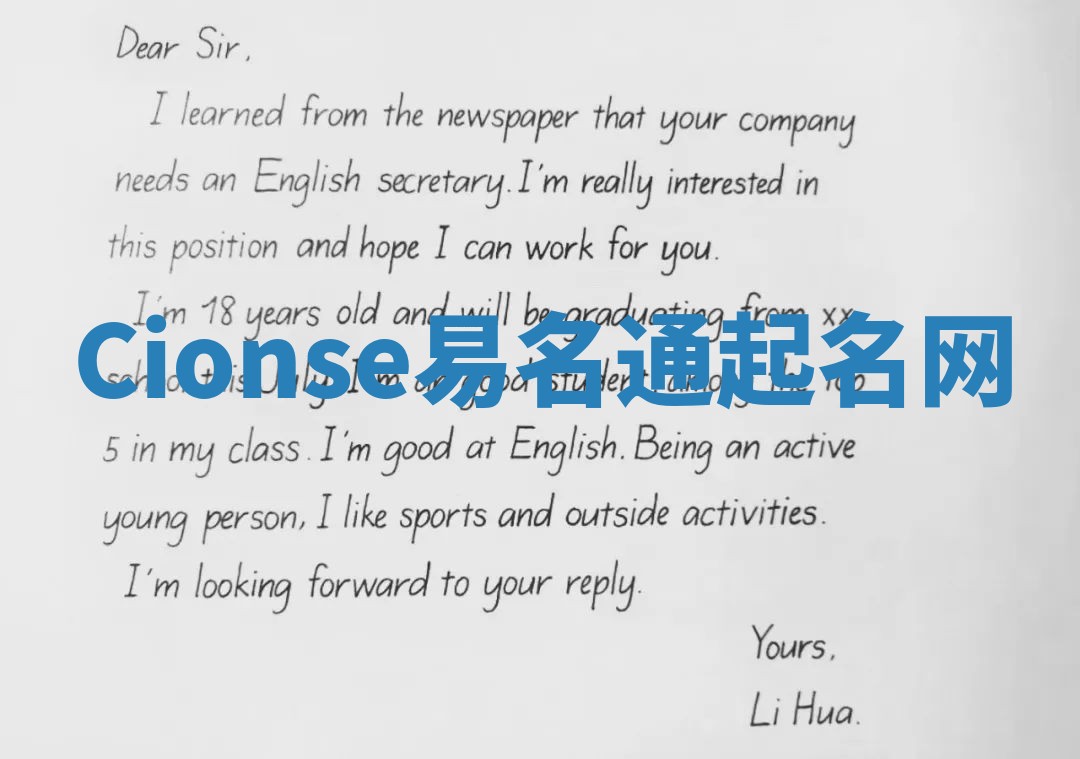 Dear Sir,
I learned from the newspaper that your company
needs an English secretary. I'm really interested in
this position and hope I can work for you.
I'm 18 years old and will be graduating from xx
Cionse易名通起名网
school this July. I'm an good student among the top
5 in my class. I'm good at English. Being an active
young person, I like sports and outside activities.
I'm looking forward to your reply.
Yours,
Li Hua.